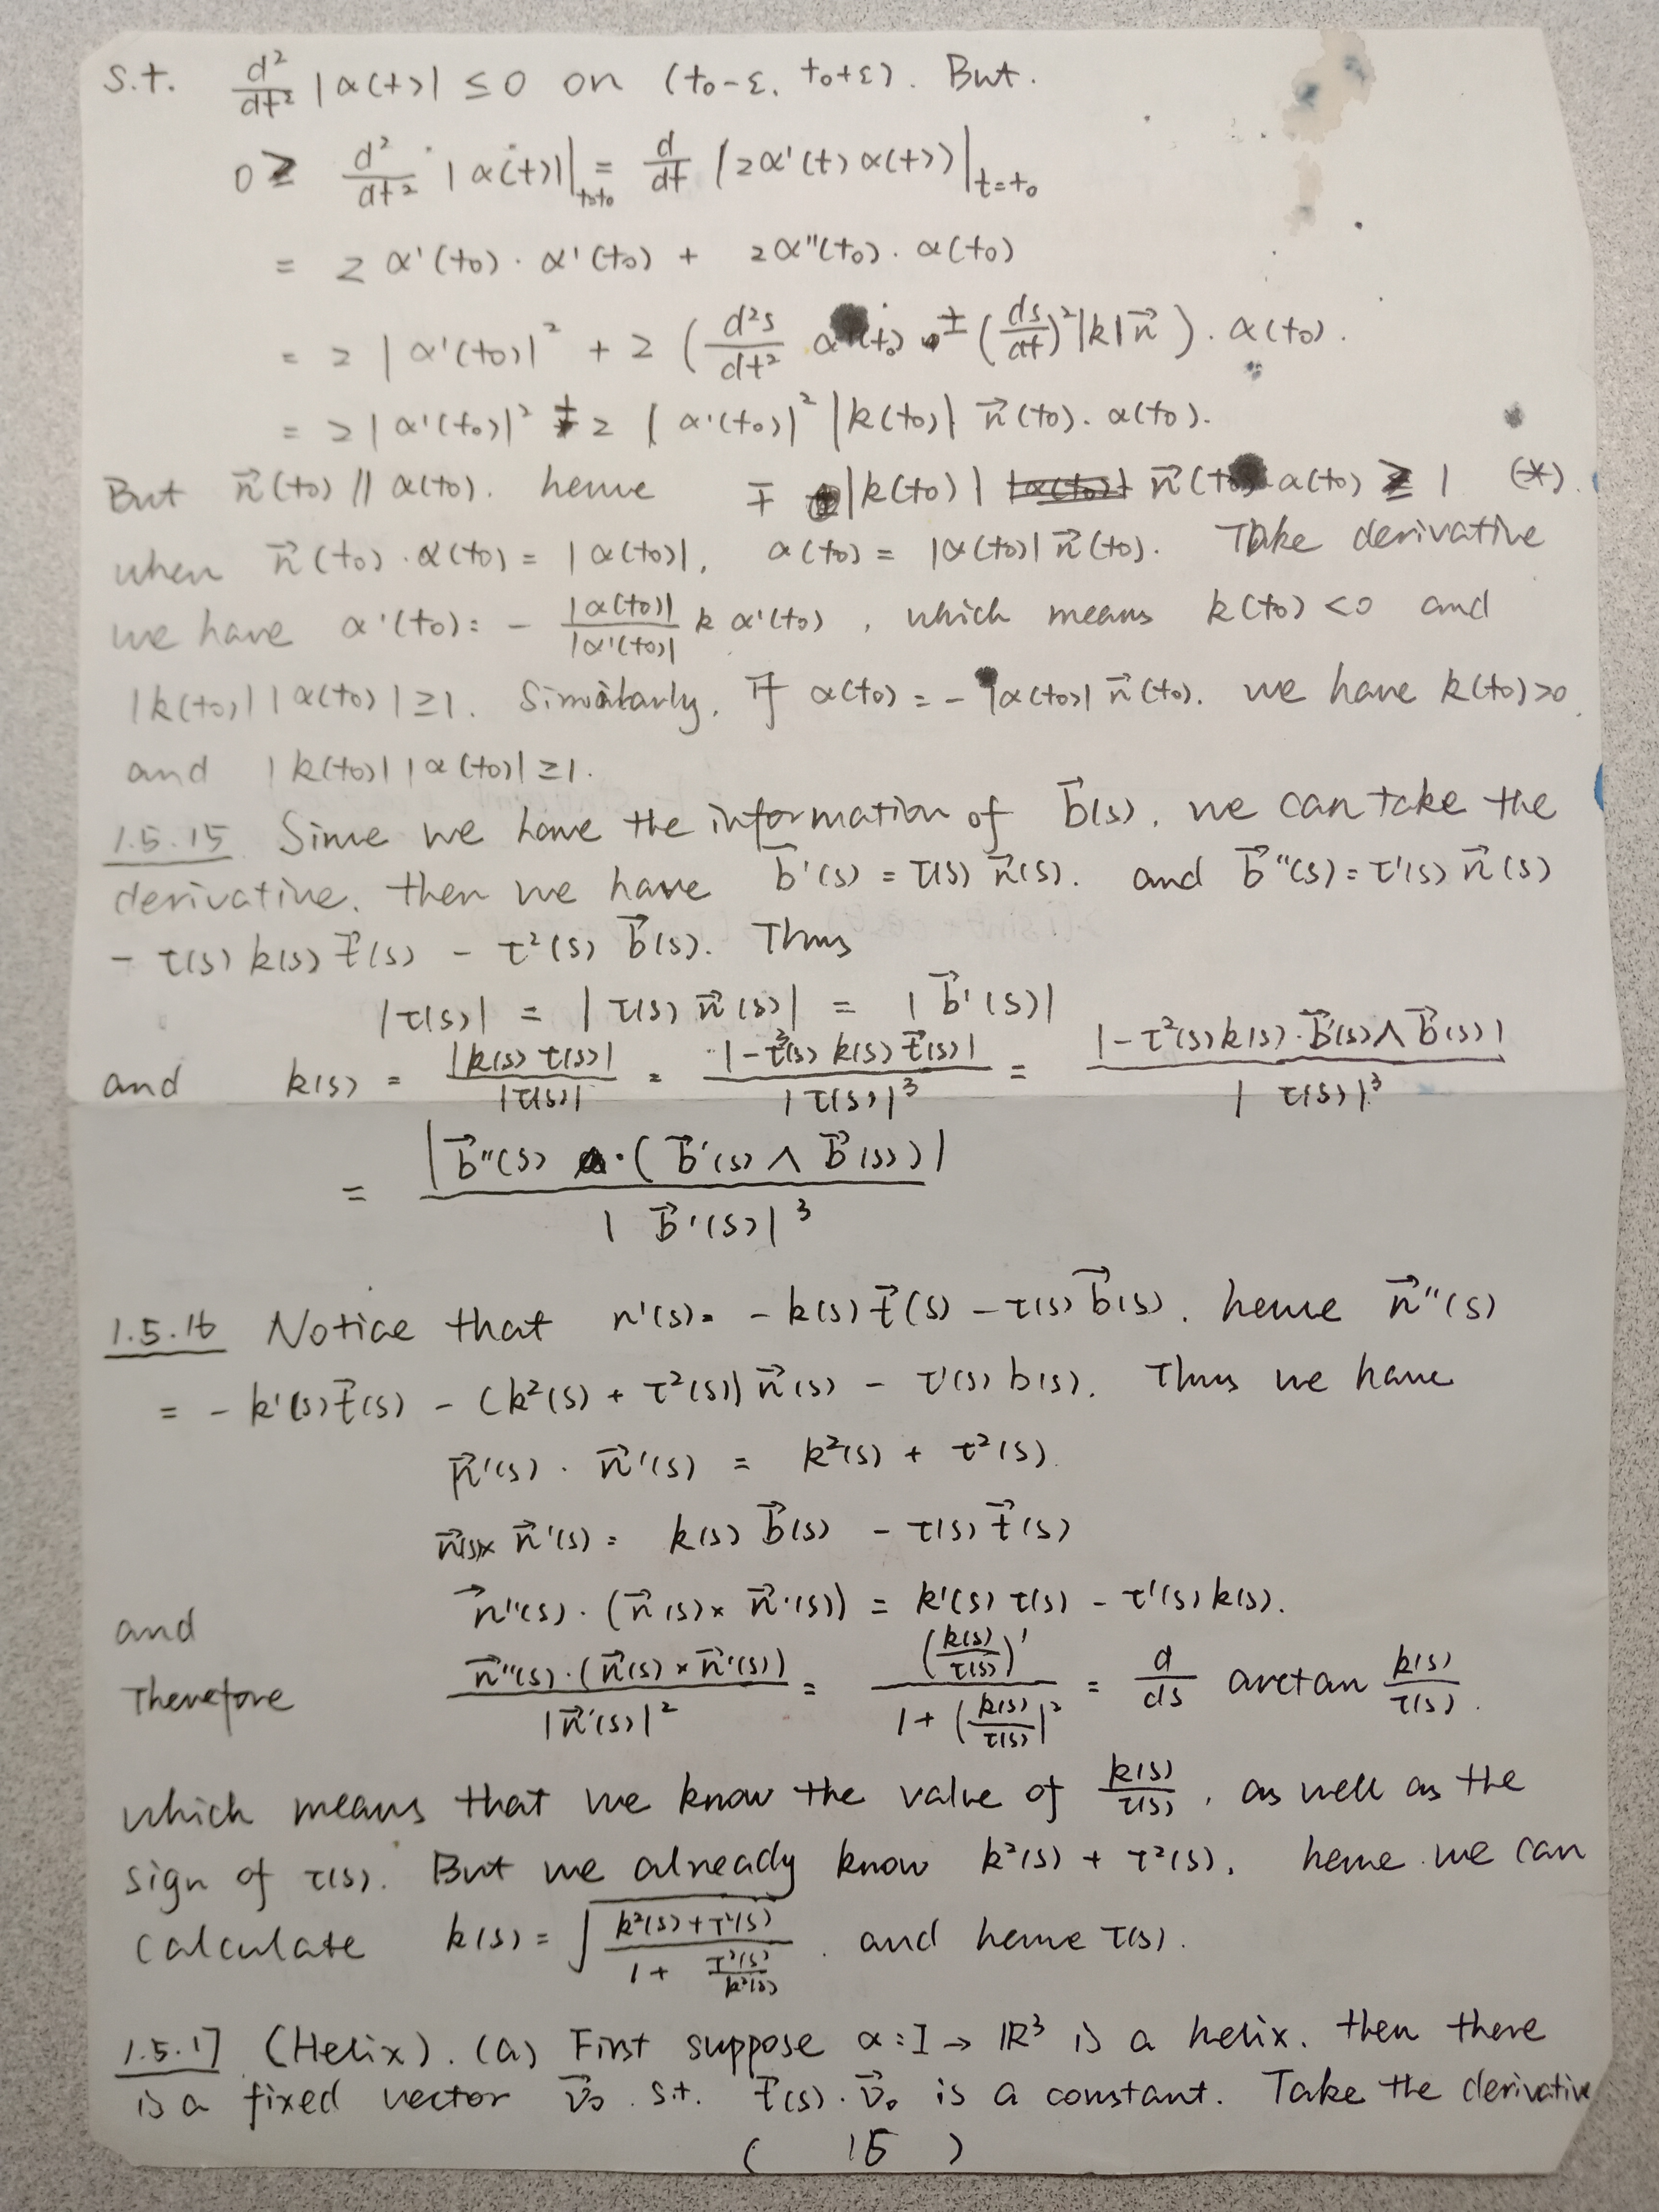 s.t. d²/dt² |α(t)| ≤ 0 on (t₀-ε, t₀+ε). But.
0 ≥ d²/dt² |α(t)||_{t=t₀} = d/dt (2α'(t) α(t))|_{t=t₀}
= 2 α'(t₀) · α'(t₀) + 2α''(t₀) · α(t₀)
= 2 |α'(t₀)|² + 2 (d²s/dt² α'(t₀) ± (ds/dt)² |k| n⃗ ) · α(t₀).
= 2 |α'(t₀)|² ± 2 |α'(t₀)|² |k(t₀)| n⃗(t₀) · α(t₀).
But n⃗(t₀) // α(t₀). hence ∓ |k(t₀)| n⃗(t₀) · α(t₀) ≥ 1 (*).
when n⃗(t₀) · α(t₀) = |α(t₀)|, α(t₀) = |α(t₀)| n⃗(t₀). Take derivative
we have α'(t₀) = - |α(t₀)|/|α'(t₀)| k α'(t₀), which means k(t₀) < 0 and
|k(t₀)| |α(t₀)| ≥ 1. Similarly, if α(t₀) = - |α(t₀)| n⃗(t₀). we have k(t₀) > 0
and |k(t₀)| |α(t₀)| ≥ 1.
1.5.15 Since we have the information of b⃗(s), we can take the
derivative. then we have b⃗'(s) = τ(s) n⃗(s). and b⃗''(s) = τ'(s) n⃗(s)
- τ(s) k(s) t⃗(s) - τ²(s) b⃗(s). Thus
|τ(s)| = |τ(s) n⃗(s)| = |b⃗'(s)|
and k(s) = |k(s) τ(s)|/|τ(s)| = |-τ³(s) k(s) t⃗(s)|/|τ(s)|³ = |-τ²(s) k(s) · b⃗'(s) ∧ b⃗(s)|/|τ(s)|³
= |b⃗''(s) · (b⃗'(s) ∧ b⃗(s))|/|b⃗'(s)|³
1.5.16 Notice that n'(s) = - k(s) t⃗(s) - τ(s) b⃗(s), hence n⃗''(s)
= - k'(s) t⃗(s) - (k²(s) + τ²(s)) n⃗(s) - τ'(s) b(s). Thus we have
n⃗'(s) · n⃗'(s) = k²(s) + τ²(s).
n⃗(s) × n⃗'(s) = k(s) b⃗(s) - τ(s) t⃗(s)
and n⃗''(s) · (n⃗(s) × n⃗'(s)) = k'(s) τ(s) - τ'(s) k(s).
Therefore n⃗''(s) · (n⃗(s) × n⃗'(s))/|n⃗'(s)|² = (k(s)/τ(s))'/(1 + (k(s)/τ(s))²) = d/ds arctan k(s)/τ(s).
which means that we know the value of k(s)/τ(s), as well as the
sign of τ(s). But we already know k²(s) + τ²(s), hence we can
calculate k(s) = √((k²(s) + τ²(s))/(1 + τ²(s)/k²(s))). and hence τ(s).
1.5.17 (Helix). (a) First suppose α : I → ℝ³ is a helix. then there
is a fixed vector v⃗₀ s.t. t⃗(s) · v⃗₀ is a constant. Take the derivative
( 15 )